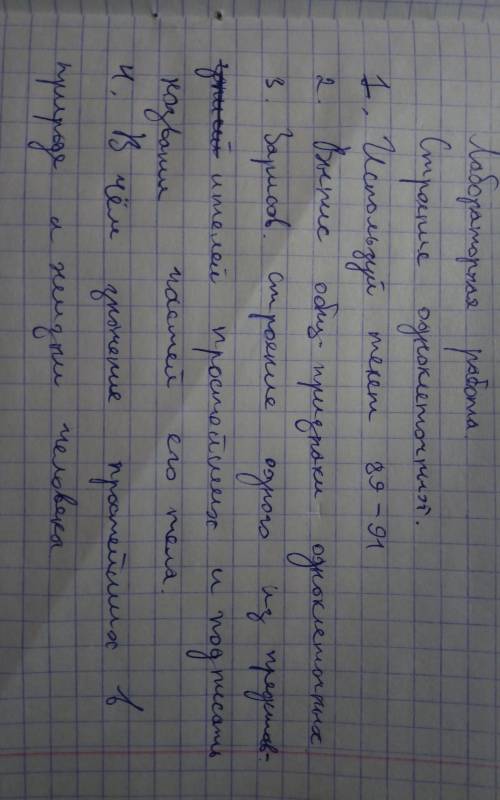 Лабораторная работа.
Строение одноклеточных.
1. Используй текст 89-91
2. Выпис общ-признаки одноклеточных
3. Зарисов. строение одного из представ-
ителей простейших и подписать
названия частей его тела.
4. В чём значение простейших в
природе и жизни человека